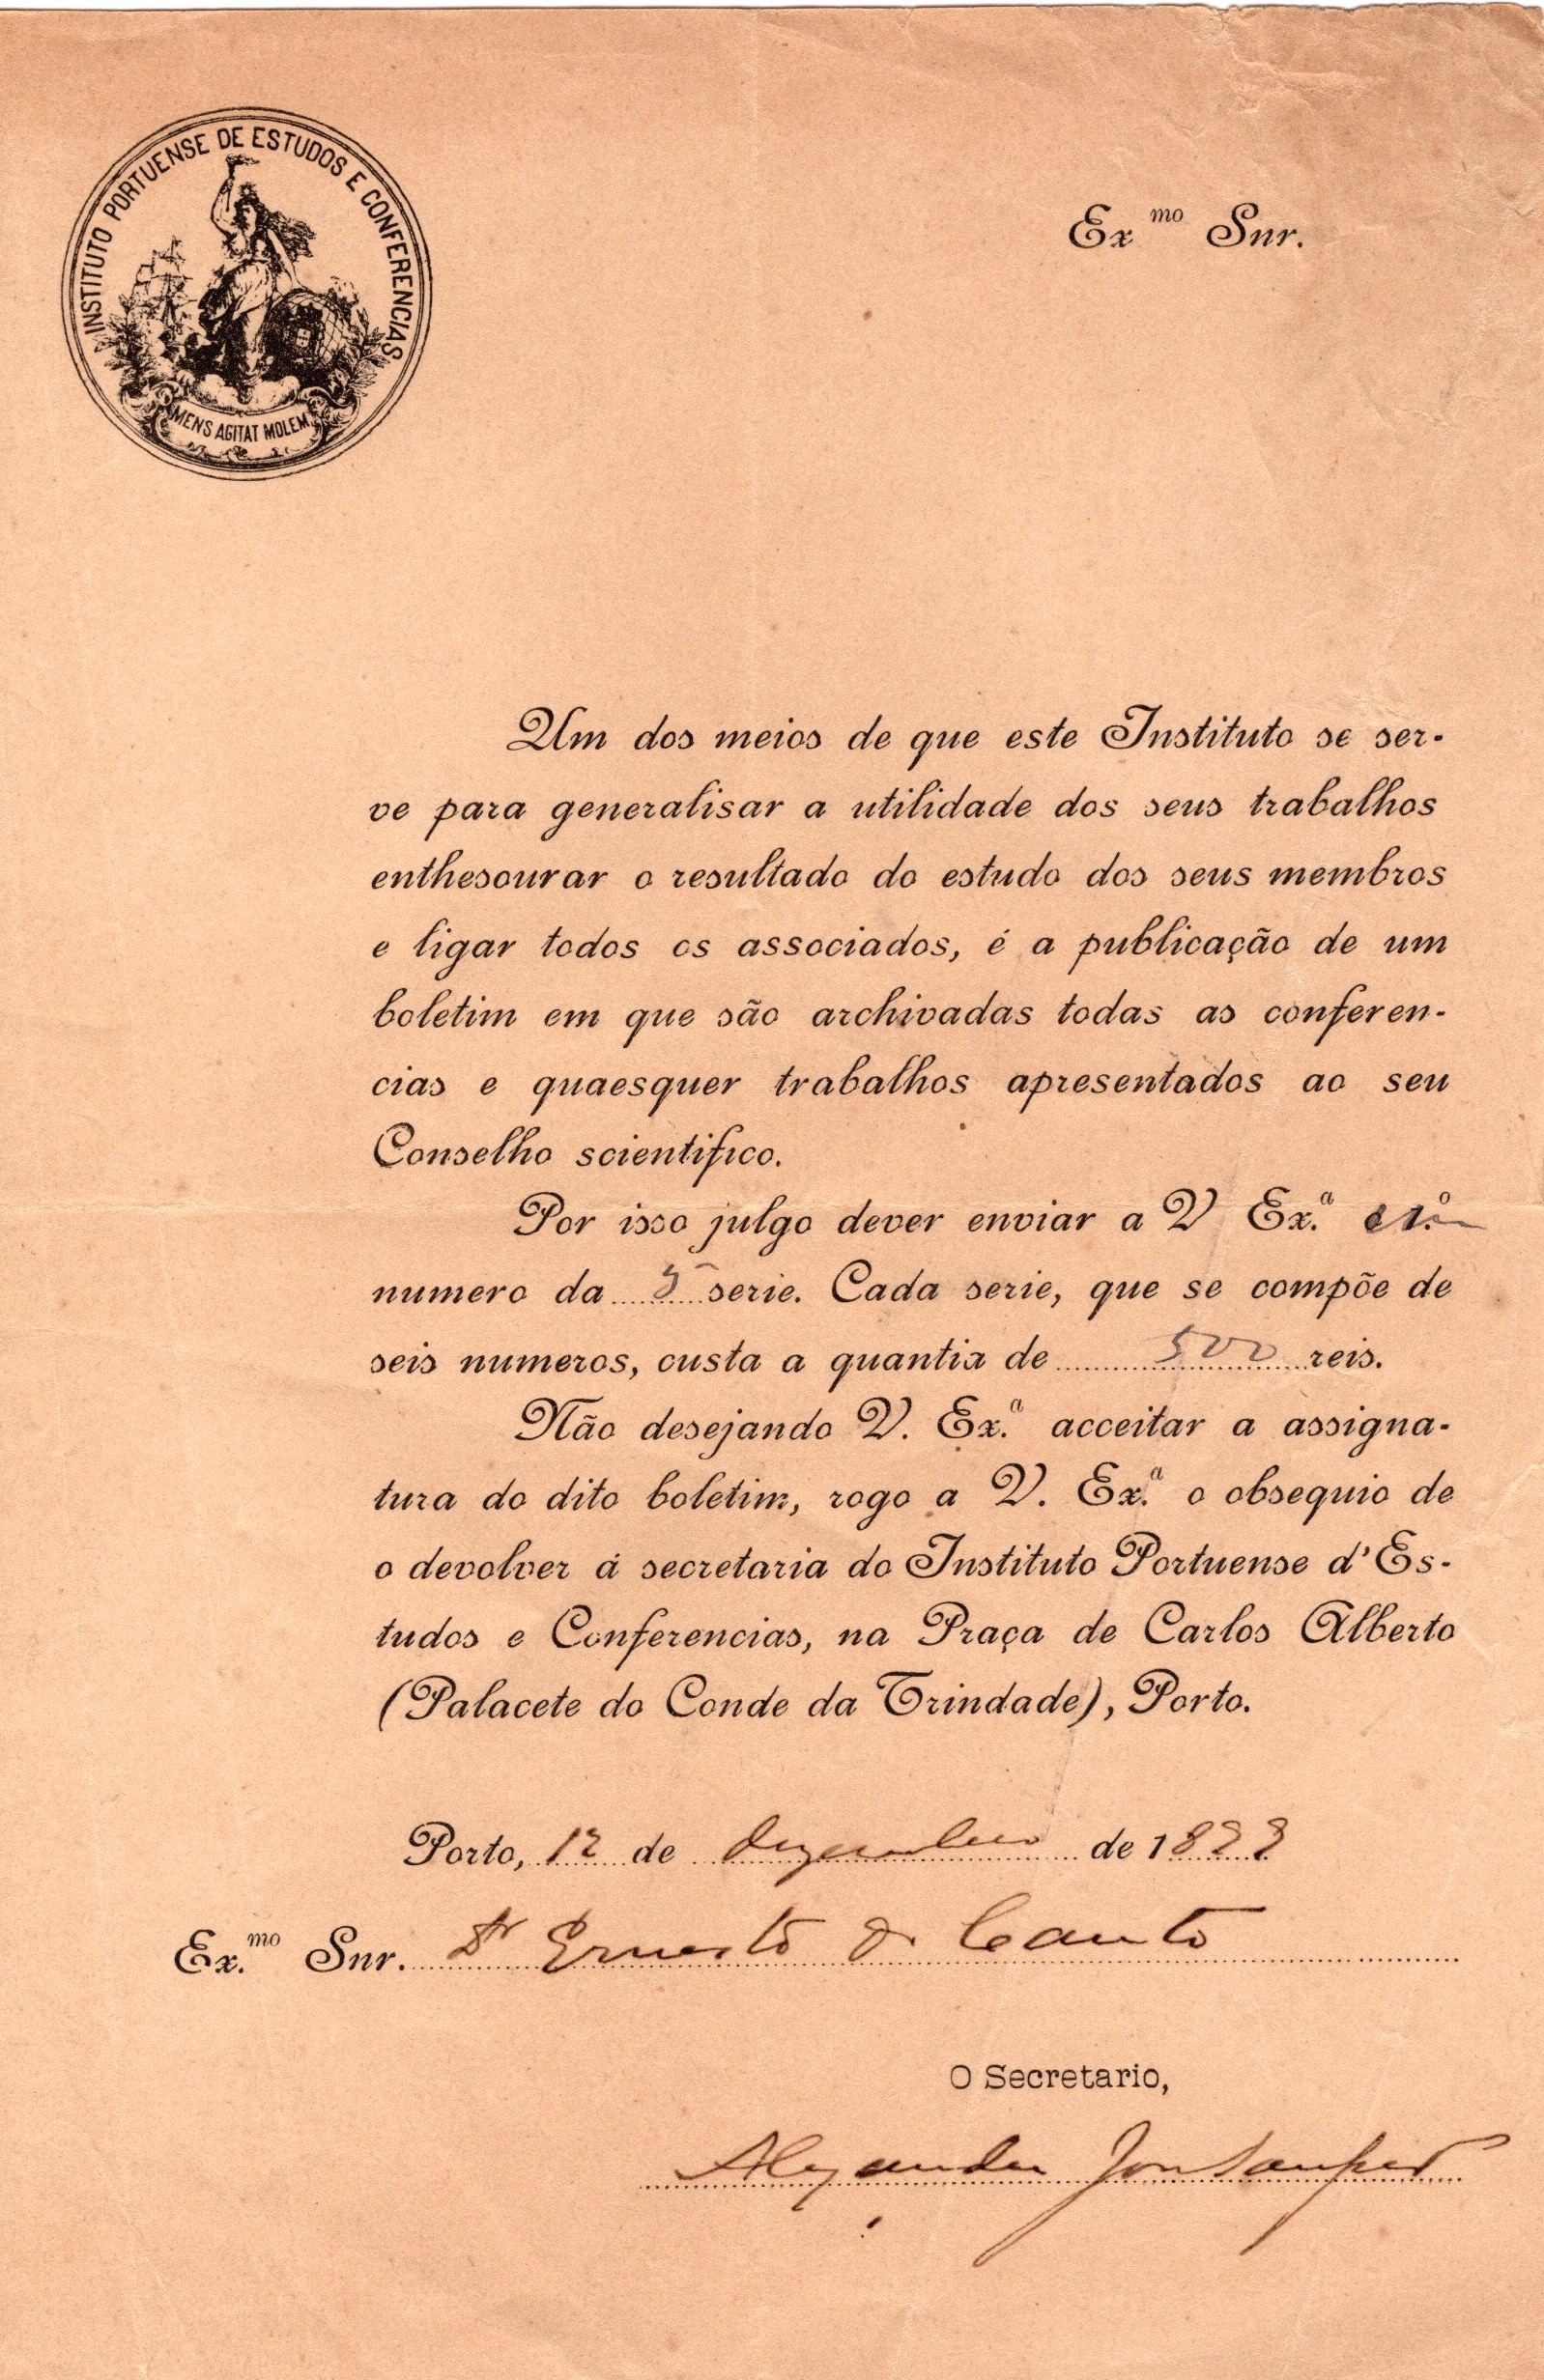 INSTITUTO PORTUENSE DE ESTUDOS E CONFERENCIAS
MENS AGITAT MOLEM
Ex mo Snr.
Um dos meios de que este Instituto se ser-
ve para generalisar a utilidade dos seus trabalhos
enthesourar o resultado do estudo dos seus membros
e ligar todos os associados, é a publicação de um
boletim em que são archivadas todas as conferen-
cias e quaesquer trabalhos apresentados ao seu
Conselho scientifico.
Por isso julgo dever enviar a V Ex.ª o 1.º
numero da serie. Cada serie, que se compõe de
seis numeros, custa a quantia de 500 reis.
Não desejando V. Ex.ª acceitar a assigna-
tura do dito boletim, rogo a V. Ex.ª o obsequio de
o devolver á secretaria do Instituto Portuense d'Es-
tudos e Conferencias, na Praça de Carlos Alberto
(Palacete do Conde da Trindade), Porto.
Porto, 12 de dezembro de 18
Ex.mo Snr. Dr Ernesto do Canto
O Secretario,